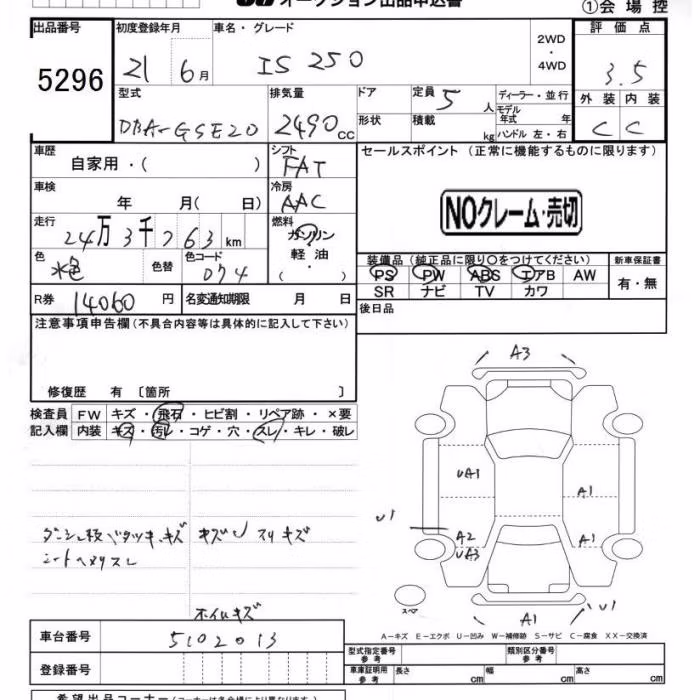 オークション出品申込書
①会場控
出品番号
5296
初度登録年月
21 6月
車名・グレード
IS 250
2WD
・
4WD
評価点
3.5
外装 内装
C C
型式
DBA-GSE20
排気量
2490cc
ドア
形状
定員
5人
積載
kg
ディーラー・並行
モデル
年式 年
ハンドル 左・右
車歴
自家用・( )
シフト
FAT
セールスポイント (正常に機能するものに限ります)
車検
年 月( 日)
冷房
AAC
NOクレーム・売切
走行
24万3千763km
燃料
ガソリン
軽油
( ・ )
色
水色
色替
色コード
074
装備品(純正品に限り○をつけてください)
新車保証書
PS PW ABS エアB AW
SR ナビ TV カワ
有・無
R券 14060円
名変通知期限 月 日
後日品
注意事項申告欄(不具合内容等は具体的に記入して下さい)
修復歴 有 〔箇所 〕
検査員
記入欄
FW キズ・飛石・ヒビ割・リペア跡・×要
内装 キズ・汚レ・コゲ・穴・スレ・キレ・破レ
A3
UA1
A1
U1
A2
UA3
A1
スペア
A1
U1
キズU スリキズ
ホイルキズ
A-キズ E-エクボ U-凹み W-補修跡 S-サビ C-腐食 XX-交換済
車台番号
5102013
登録番号
型式指定番号
参考
類別区分番号
参考
車庫証明用
参考
長さ cm
幅 cm
高さ cm
希望出品コーナー